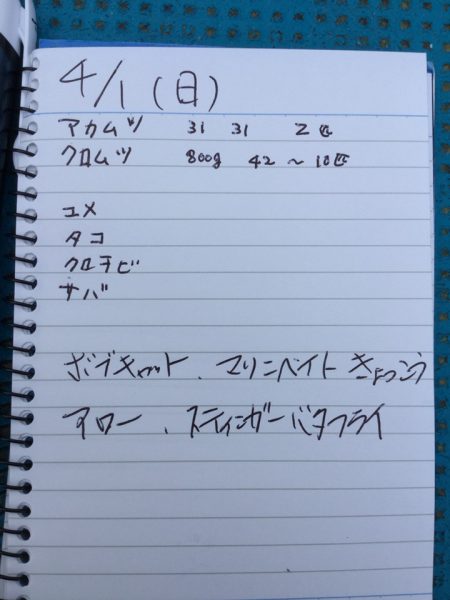 4/1(日)
アカムツ 31 31 2匹
クロムツ 800g 42 ~ 10匹
ユメ
タコ
クロチビ
サバ
ボブキャット、マリンベイト きょっこう
アロー、スティンガーバタフライ